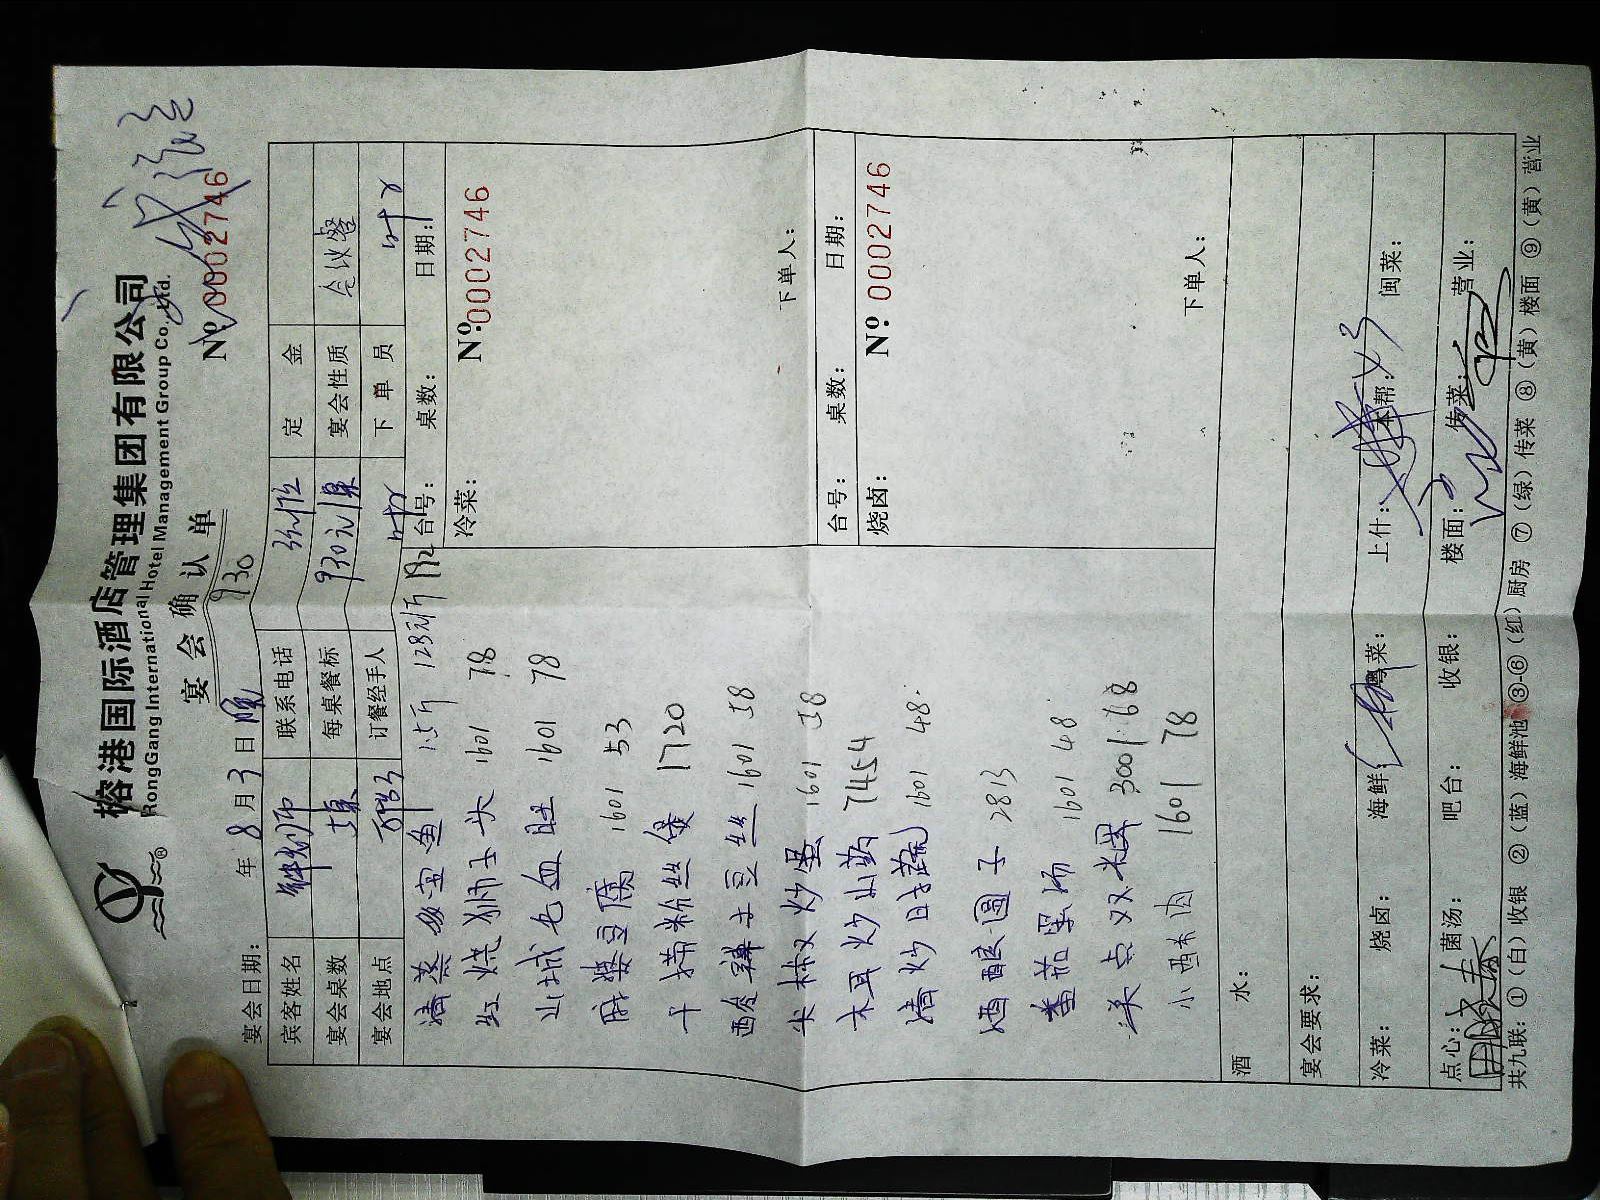 榕港国际酒店管理集团有限公司
RongGang International Hotel Management Group Co., Ltd.
宴会确认单
930
Nº 0002746
宴会日期: 年 8 月 3 日 晚
宾客姓名 联系电话 定金
宴会桌数 1桌 每桌餐标 930元/桌 宴会性质 会议餐
宴会地点 订餐经手人 下单员 叶
清蒸多宝鱼 1.5斤 128元/斤
红烧狮子头 1601 78
山城毛血旺 1601 78
麻婆豆腐 1601 53
干捞粉丝煲 1720
酸辣土豆丝 1601 38
尖椒炒蛋 1601 38
木耳炒山药 7454
清炒时蔬 1601 48
酒酿圆子 2813
番茄蛋汤 1601 48
美点双辉 3001 68
小酥肉 1601 78
台号: 桌数: 日期:
冷菜:
Nº 0002746
下单人:
台号: 桌数: 日期:
烧卤:
Nº 0002746
下单人:
酒水:
宴会要求:
冷菜: 烧卤: 海鲜: 粤菜: 上什: 本帮: 闽菜:
点心: 菌汤: 吧台: 收银: 楼面: 传菜: 营业:
共九联: ①(白)收银 ②(蓝)海鲜池 ③-⑥(红)厨房 ⑦(绿)传菜 ⑧(黄)楼面 ⑨(黄)营业